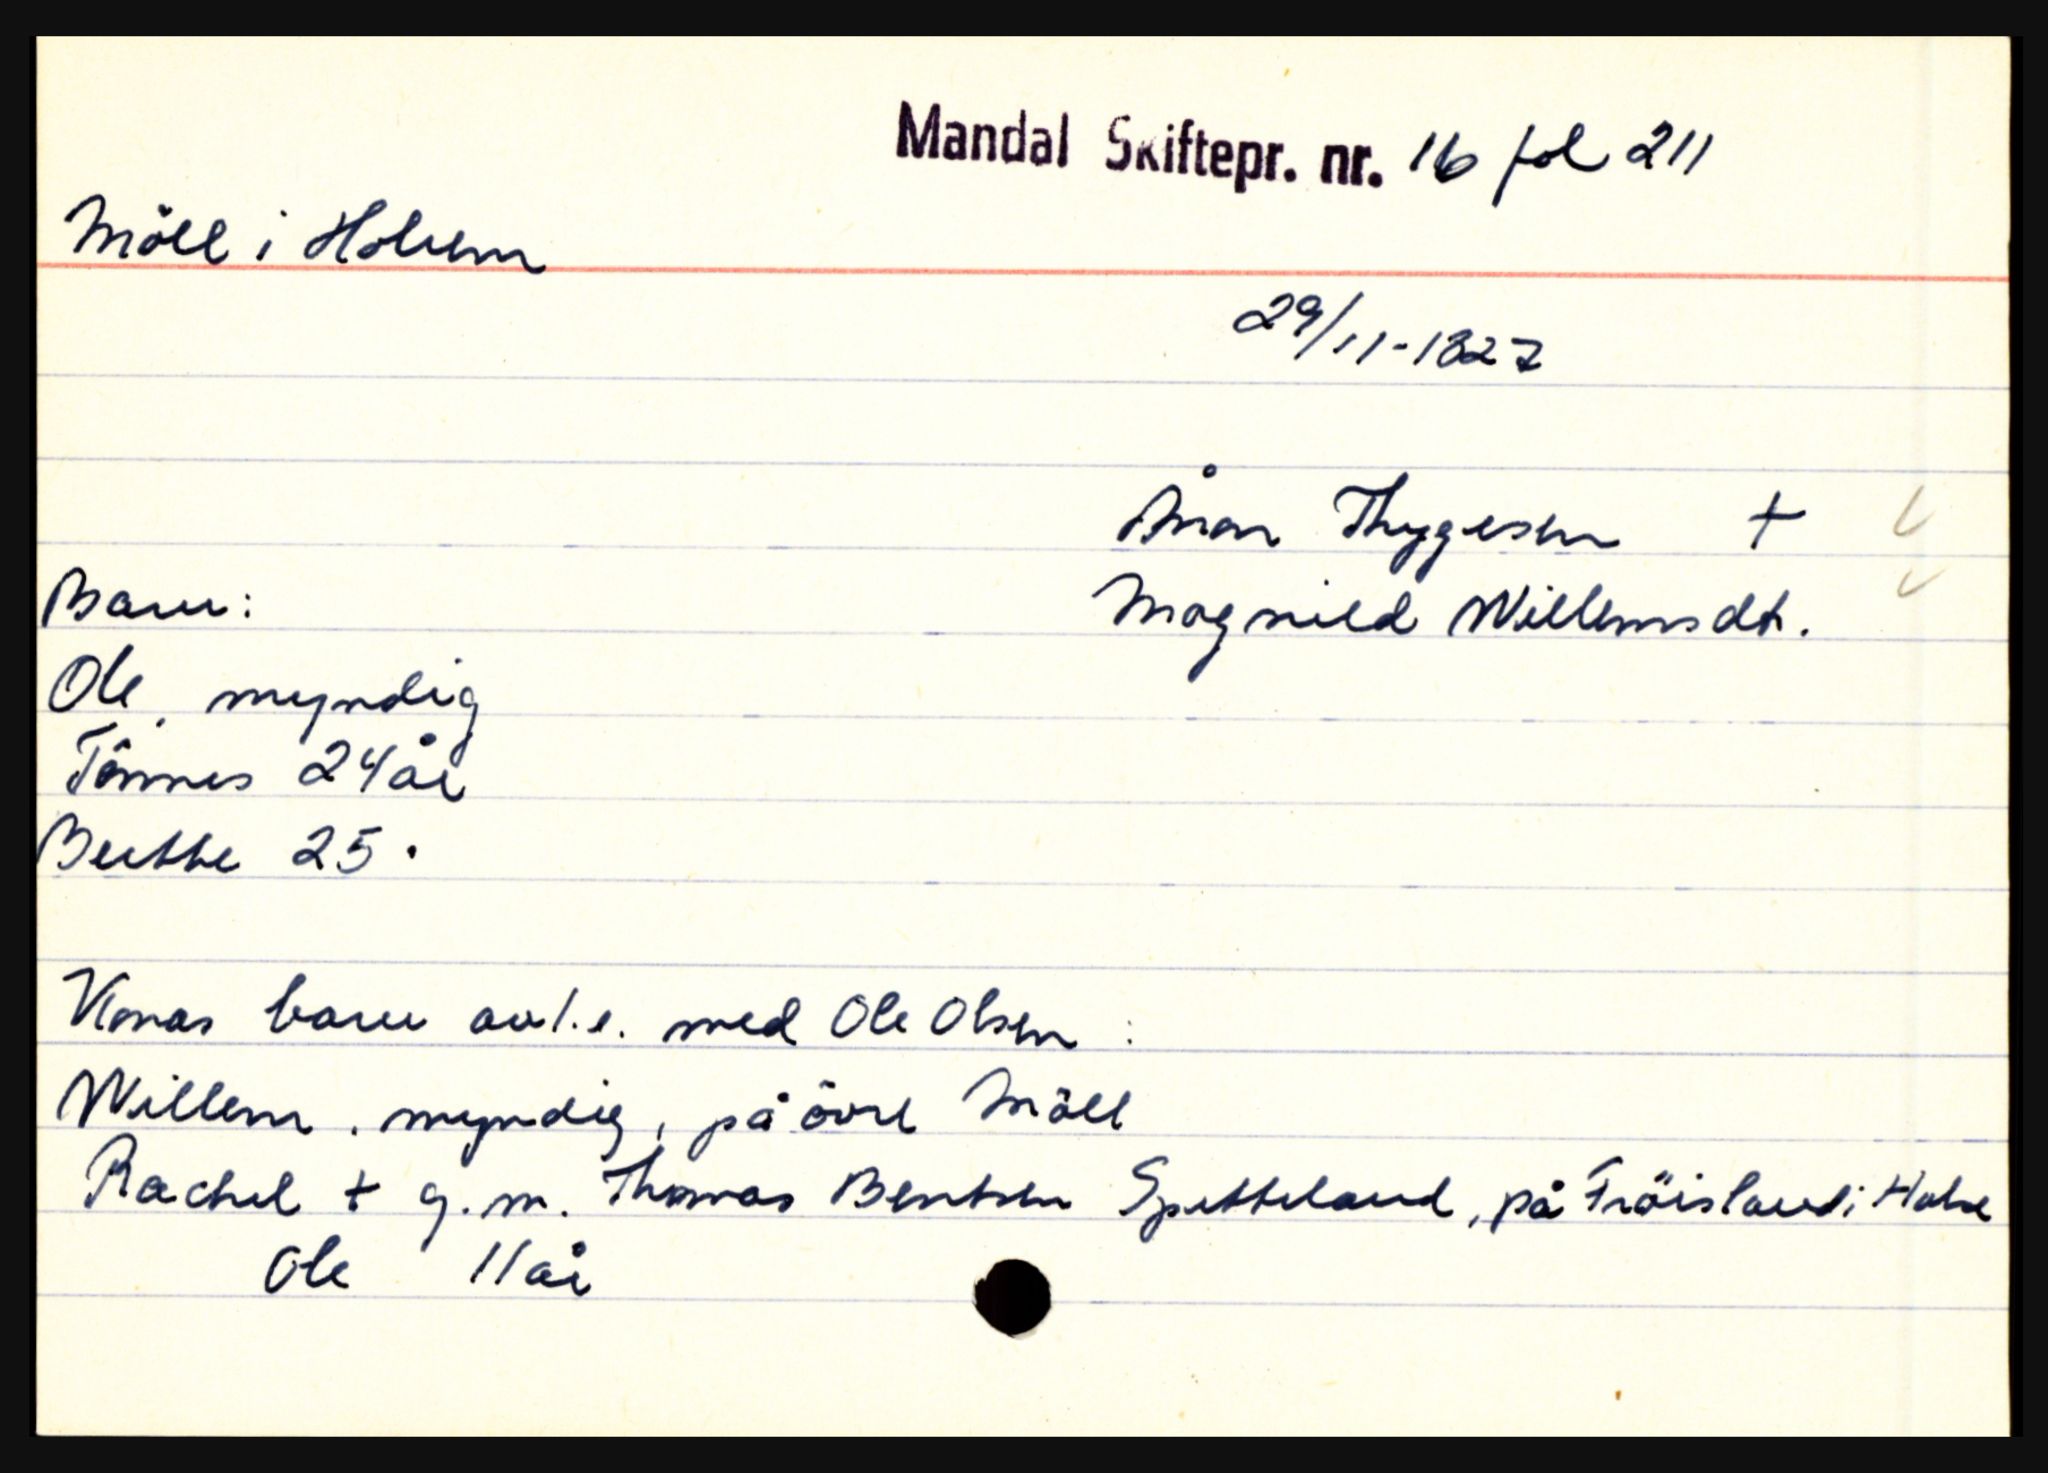 Mandal Skiftepr. nr. 16 fol 211
Möll i Holum
29/11-1827
Ånon Thygesen +
Magnild Willemsdt.
Barn:
Ole, myndig
Tönnes 24 år
Berthe 25 .
Konas barn av 1. e. med Ole Olsen :
Willem , myndig, på övre Möll
Rachel + g. m. Thomas Bentsen Spetteland, på Fröisland i Halse
Ole 11 år